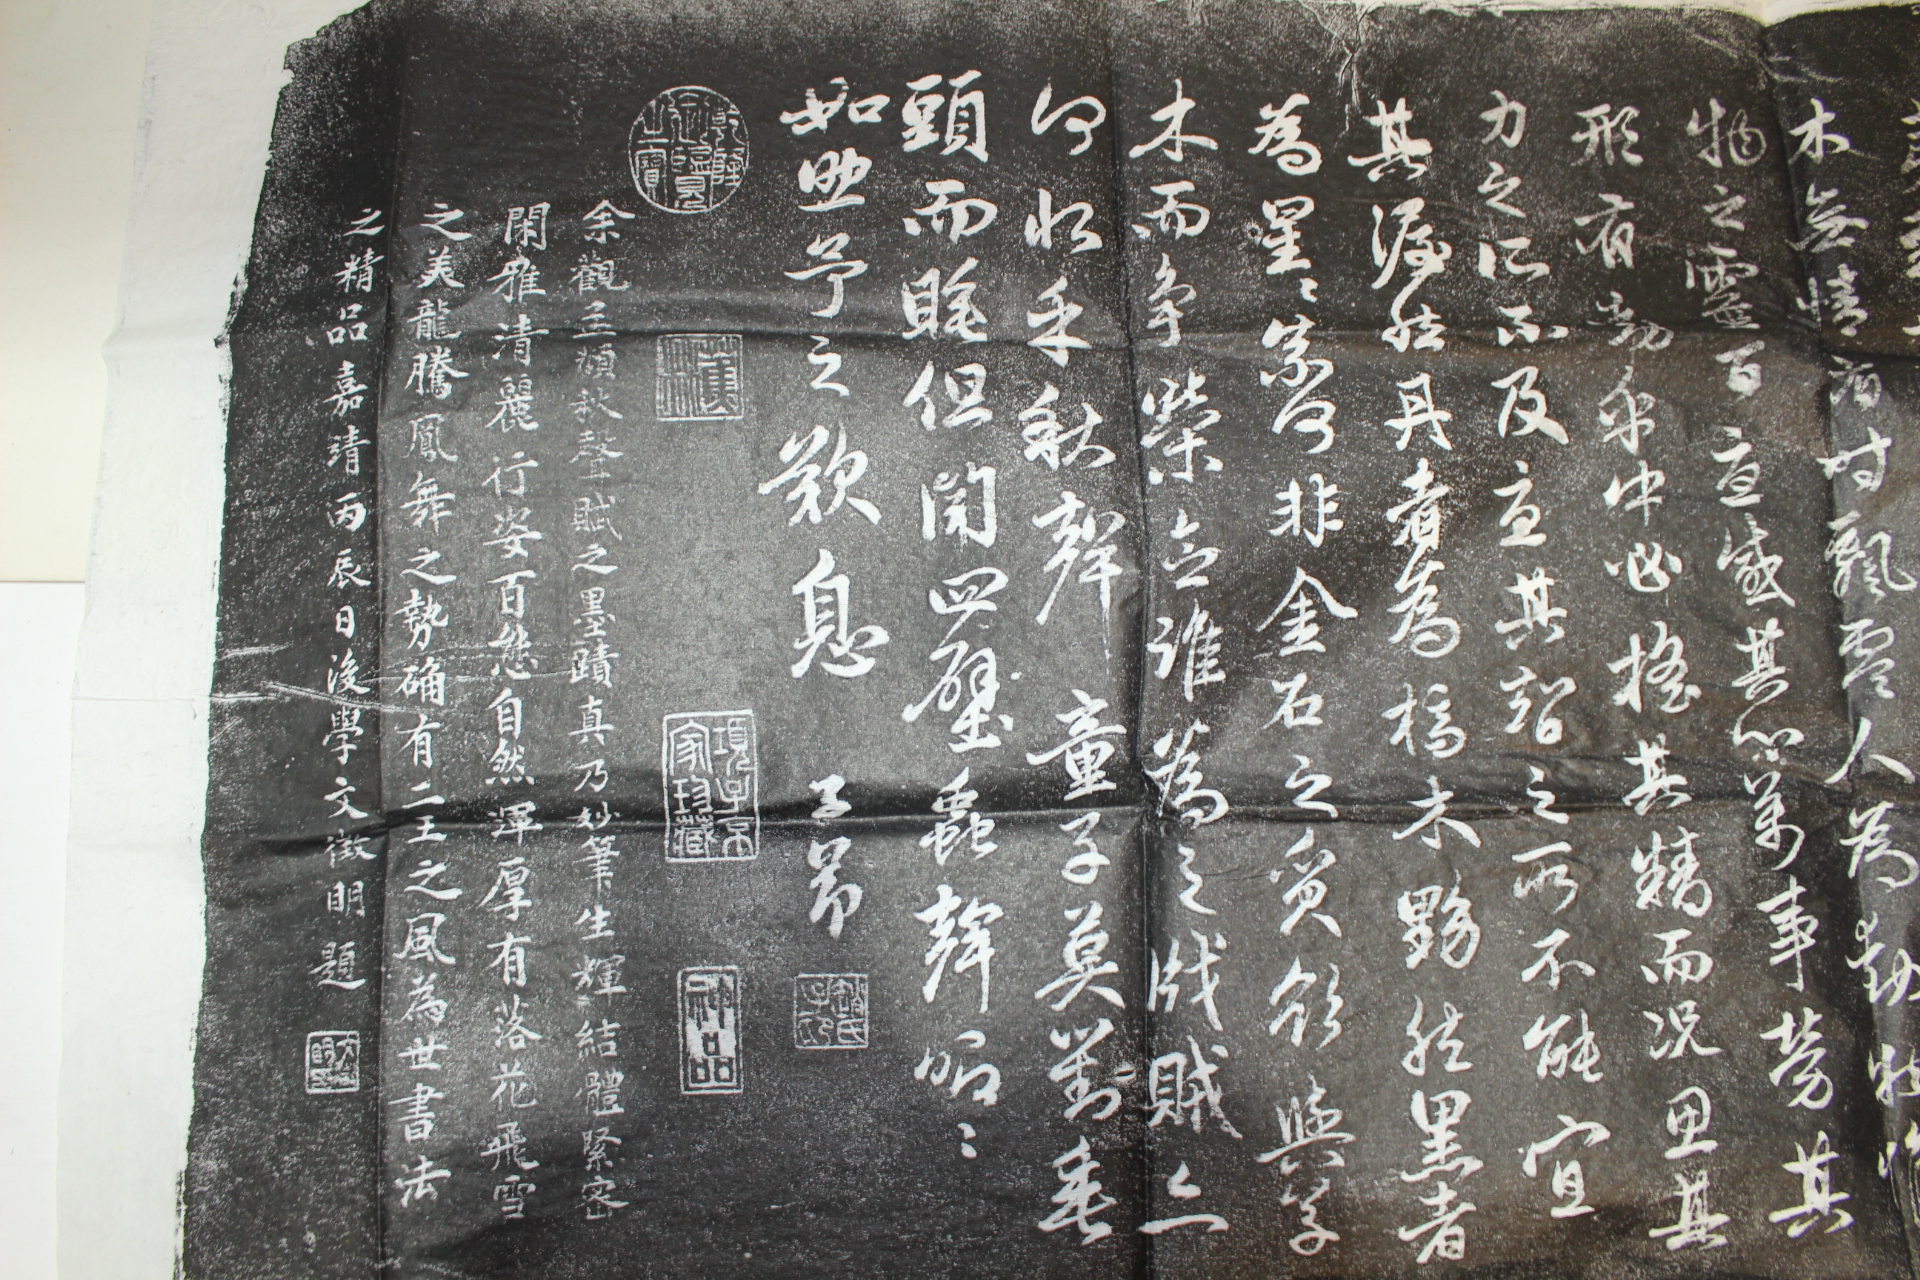 木無情有時飄零人為動物惟
物之靈百憂感其心萬事勞其
形有動乎中必搖其精而況思其
力之所不及憂其智之所不能宜
其渥然丹者為槁木黟然黑者
為星〻柰何非金石之質欲與草
木而爭榮念誰為之戕賊亦
何恨乎秋聲童子莫對垂
頭而睡但聞四壁蟲聲唧〻
如助予之歎息 子昂
趙氏子印
乾隆御覽之寶
項子京家珍藏
神品
余觀孟頫秋聲賦之墨蹟真乃妙筆生輝結體緊密
閑雅清麗行姿百態自然渾厚有落花飛雪
之美龍騰鳳舞之勢确有二王之風為世書法
之精品嘉靖丙辰日後學文徵明題